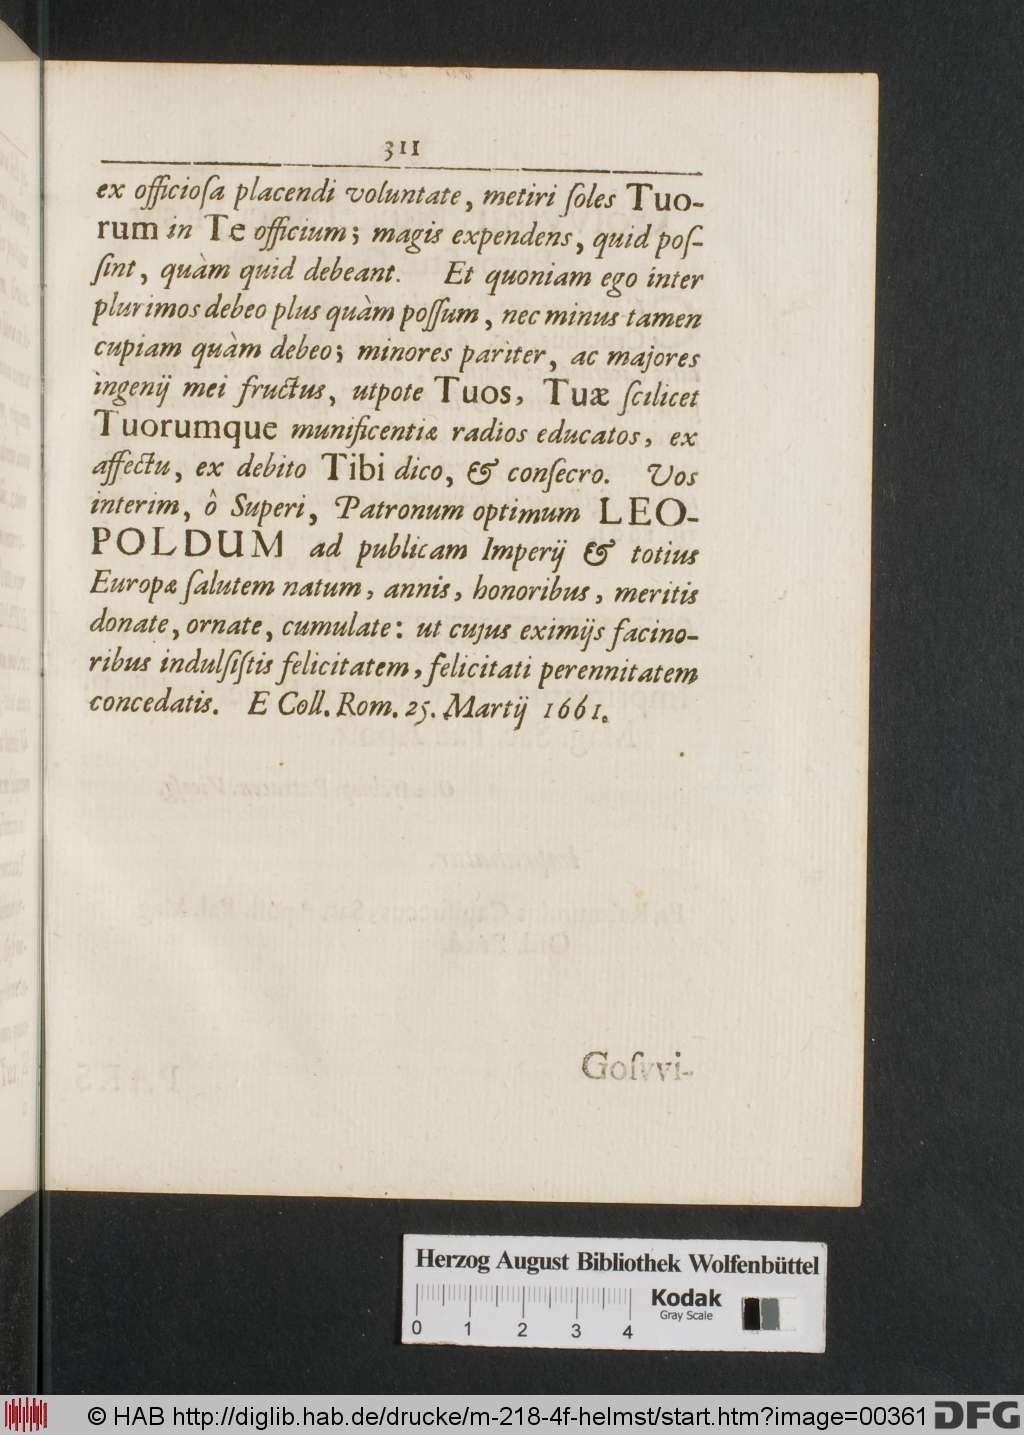 311
ex officioſa placendi voluntate, metiri ſoles Tuo-
rum in Te officium; magis expendens, quid poſ-
ſint, quàm quid debeant. Et quoniam ego inter
plurimos debeo plus quàm poſſum, nec minus tamen
cupiam quàm debeo; minores pariter, ac majores
ingenij mei fructus, utpote Tuos, Tuæ ſcilicet
Tuorumque munificentiæ radios educatos, ex
affectu, ex debito Tibi dico, & conſecro. Vos
interim, ô Superi, Patronum optimum LEO-
POLDUM ad publicam Imperij & totius
Europæ ſalutem natum, annis, honoribus, meritis
donate, ornate, cumulate: ut cujus eximijs facino-
ribus indulſiſtis felicitatem, felicitati perennitatem
concedatis. E Coll. Rom. 25. Martij 1661.
Goſvvi-
Herzog August Bibliothek Wolfenbüttel
Kodak
Gray Scale
0 1 2 3 4
© HAB http://diglib.hab.de/drucke/m-218-4f-helmst/start.htm?image=00361
DFG